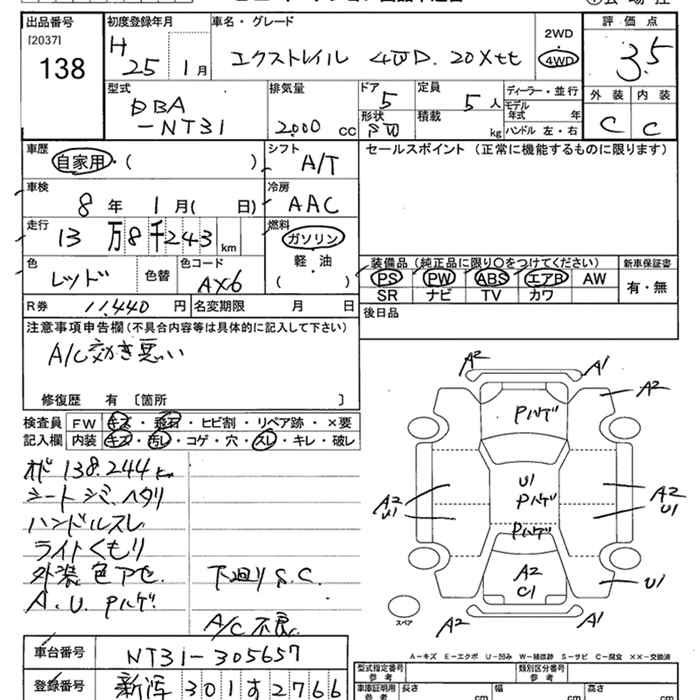 出品番号 初度登録年月 車名・グレード 2WD 評価点
[2037] H エクストレイル 4WD. 20Xtt 4WD 3.5
138 25 1月
型式 排気量 ドア 定員 ディーラー・並行 外装 内装
DBA 5 5人 モデル年式 年
-NT31 2000 cc 形状 積載 kg ハンドル 左・右 C C
車歴 シフト セールスポイント (正常に機能するものに限ります)
自家用・( ) A/T
車検 冷房
8年 1月( 日) AAC
走行 燃料
13万8千243km ガソリン
色 色替 色コード 軽・油 装備品(純正品に限り○をつけてください) 新車保証書
レッド AX6 ( ) PS PW ABS エアB AW 有・無
SR ナビ TV カワ
R券 11,440円 名変期限 月 日 後日品
注意事項申告欄(不具合内容等は具体的に記入して下さい)
A/C効き悪い
修復歴 有 〔箇所 〕
検査員 FW キズ・飛石・ヒビ割・リペア跡・×要
記入欄 内装 キズ・汚レ・コゲ・穴・スレ・キレ・破レ
オド 138.244km
シートシミ.ヘタリ
ハンドルスレ
ライトくもり
外装色アセ. 下廻りS.C.
A.U.Pハゲ
A/C不良.
A2 A1
Pハゲ A2
U1
A2 Pハゲ A2
U1 Pハゲ U1
A2
C1 U1
スペア A2 A1
A-キズ E-エクボ U-凹み W-補修跡 S-サビ C-腐食 ××-交換済
車台番号 NT31-305657 型式指定番号 参考 類別区分番号 参考
登録番号 新潟 301す2766 車庫証明用 参考 長さ cm 幅 cm 高さ cm